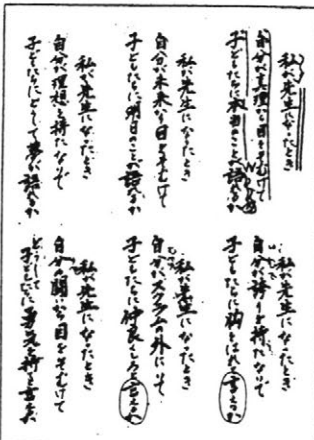 私が先生になったとき
自分が真理から目をそむけて
子どもたちに本当のことが語れるか
私が先生になったとき
自分が未来から目をそむけて
子どもたちに明日のことが語れるか
私が先生になったとき
自分が理想を持たないで
子どもたちにどうして夢が語れるか
私が先生になったとき
自分が誇りを持たないで
子どもたちに胸をはれと言えるか
私が先生になったとき
自分がスクラムの外にいて
子どもたちに仲良くしろと言えるか
私が先生になったとき
自分の闘いから目をそむけて
どうして子どもたちに勇気を持てと言えるか